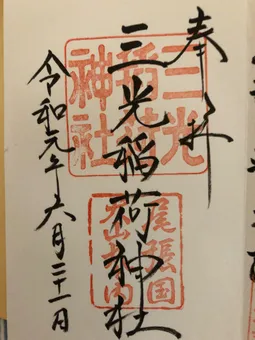 奉拝
三光稲荷神社
令和元年六月二十一日
三光
稲荷
神社
尾張国
犬山城内